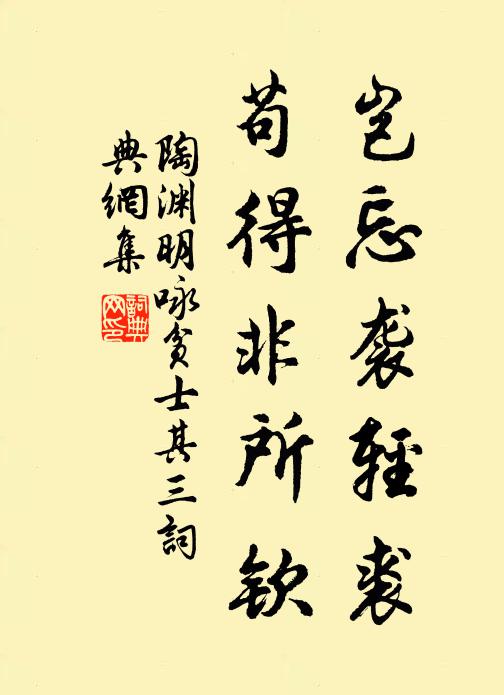 岂忘袭轻裘
苟得非所钦
陶渊明咏贫士其三词
典網集
詞典网印